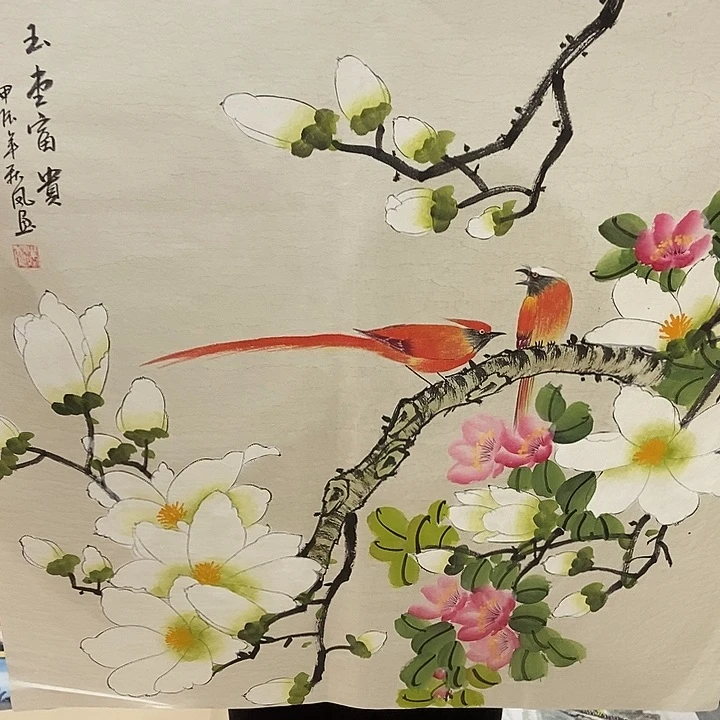 玉堂富貴
甲辰年秋凤画